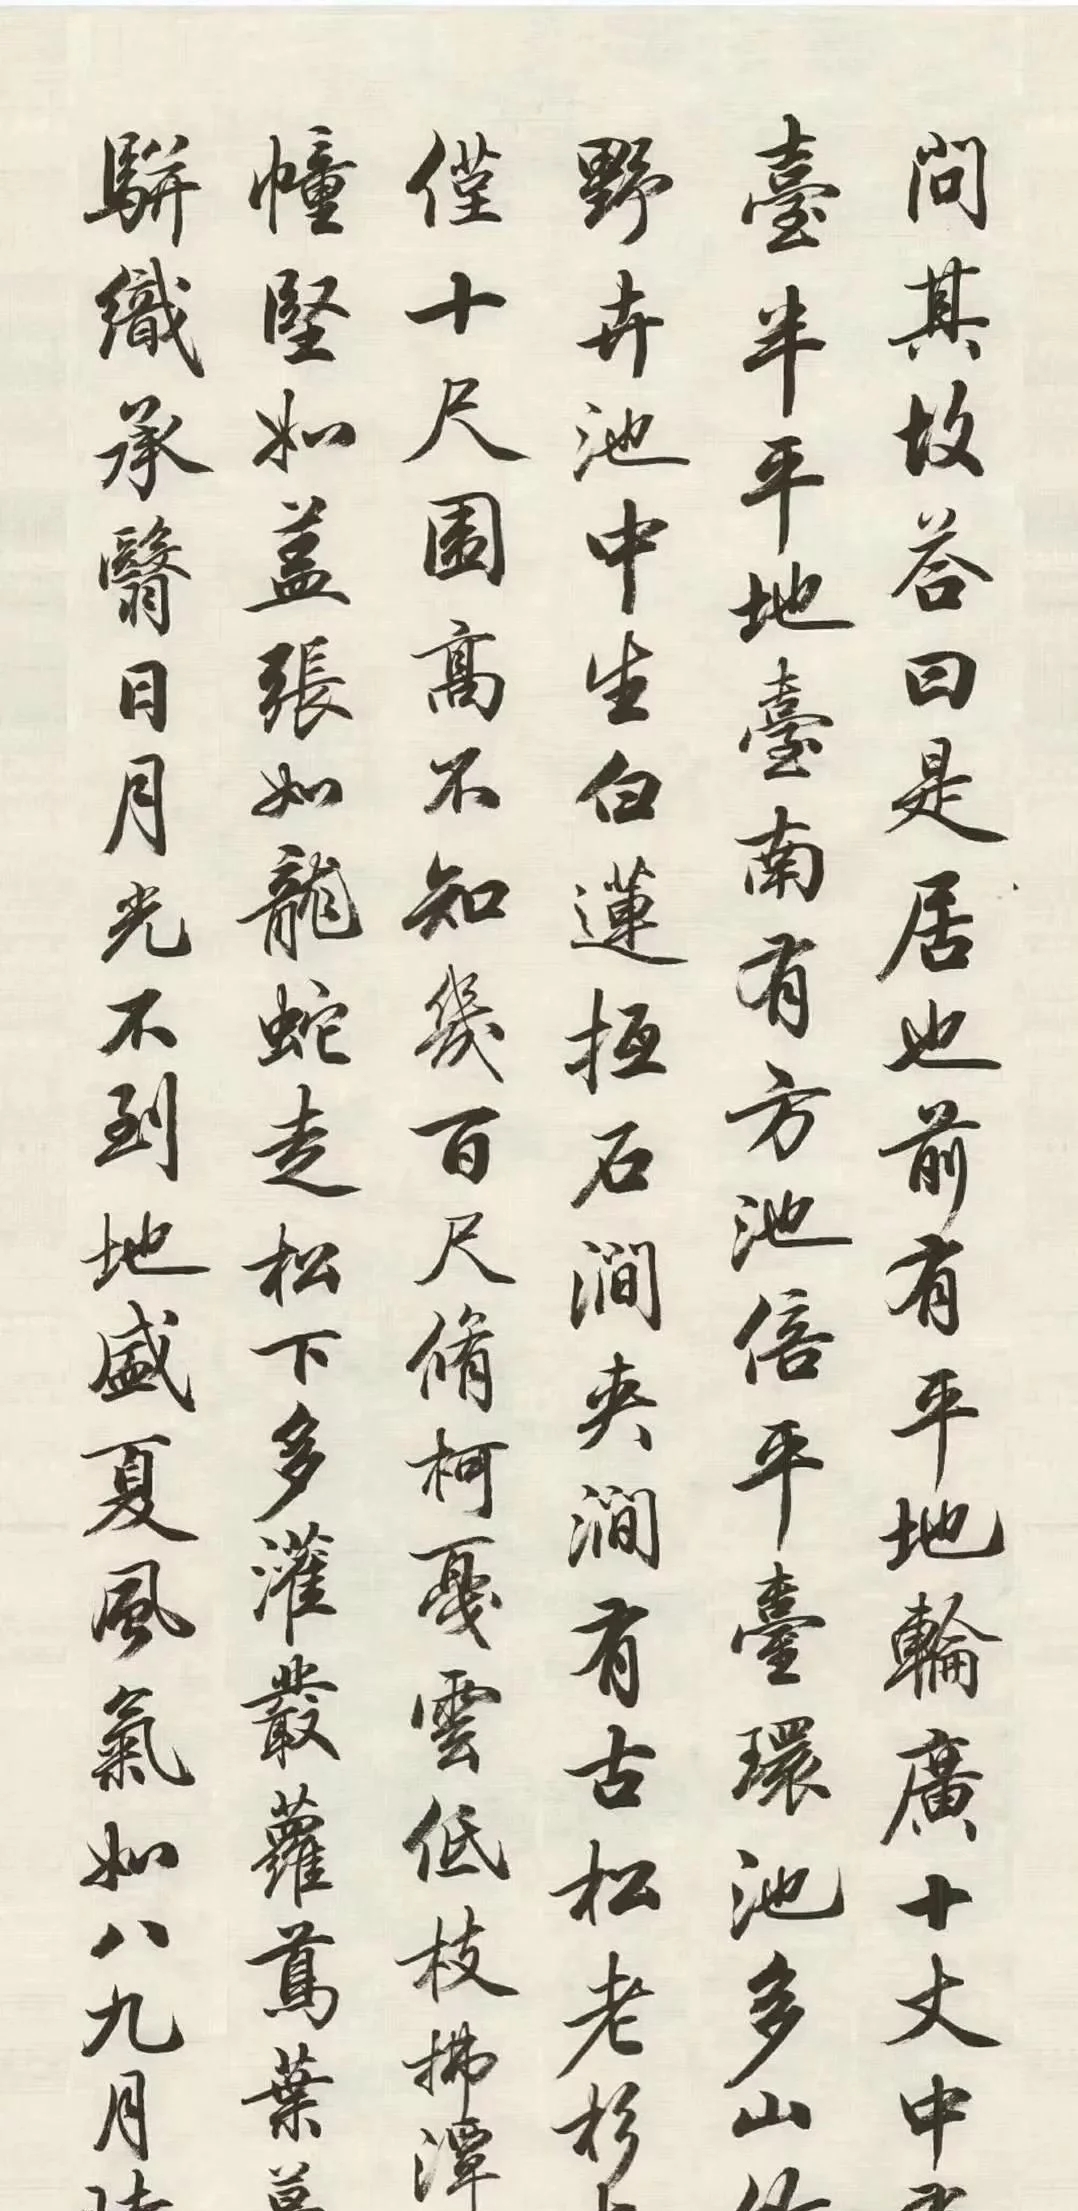 問其故答曰是居也前有平地輪廣十丈中
臺半平地臺南有方池倍平臺環池多山
野卉池中生白蓮抠石澗夹澗有古松老杉
僅十尺圍高不知幾百尺脩柯戛雲低枝拂潭
幢堅如盖張如龍蛇走松下多灌叢蘿蔦葉
駢織承翳日月光不到地盛夏風氣如八九月